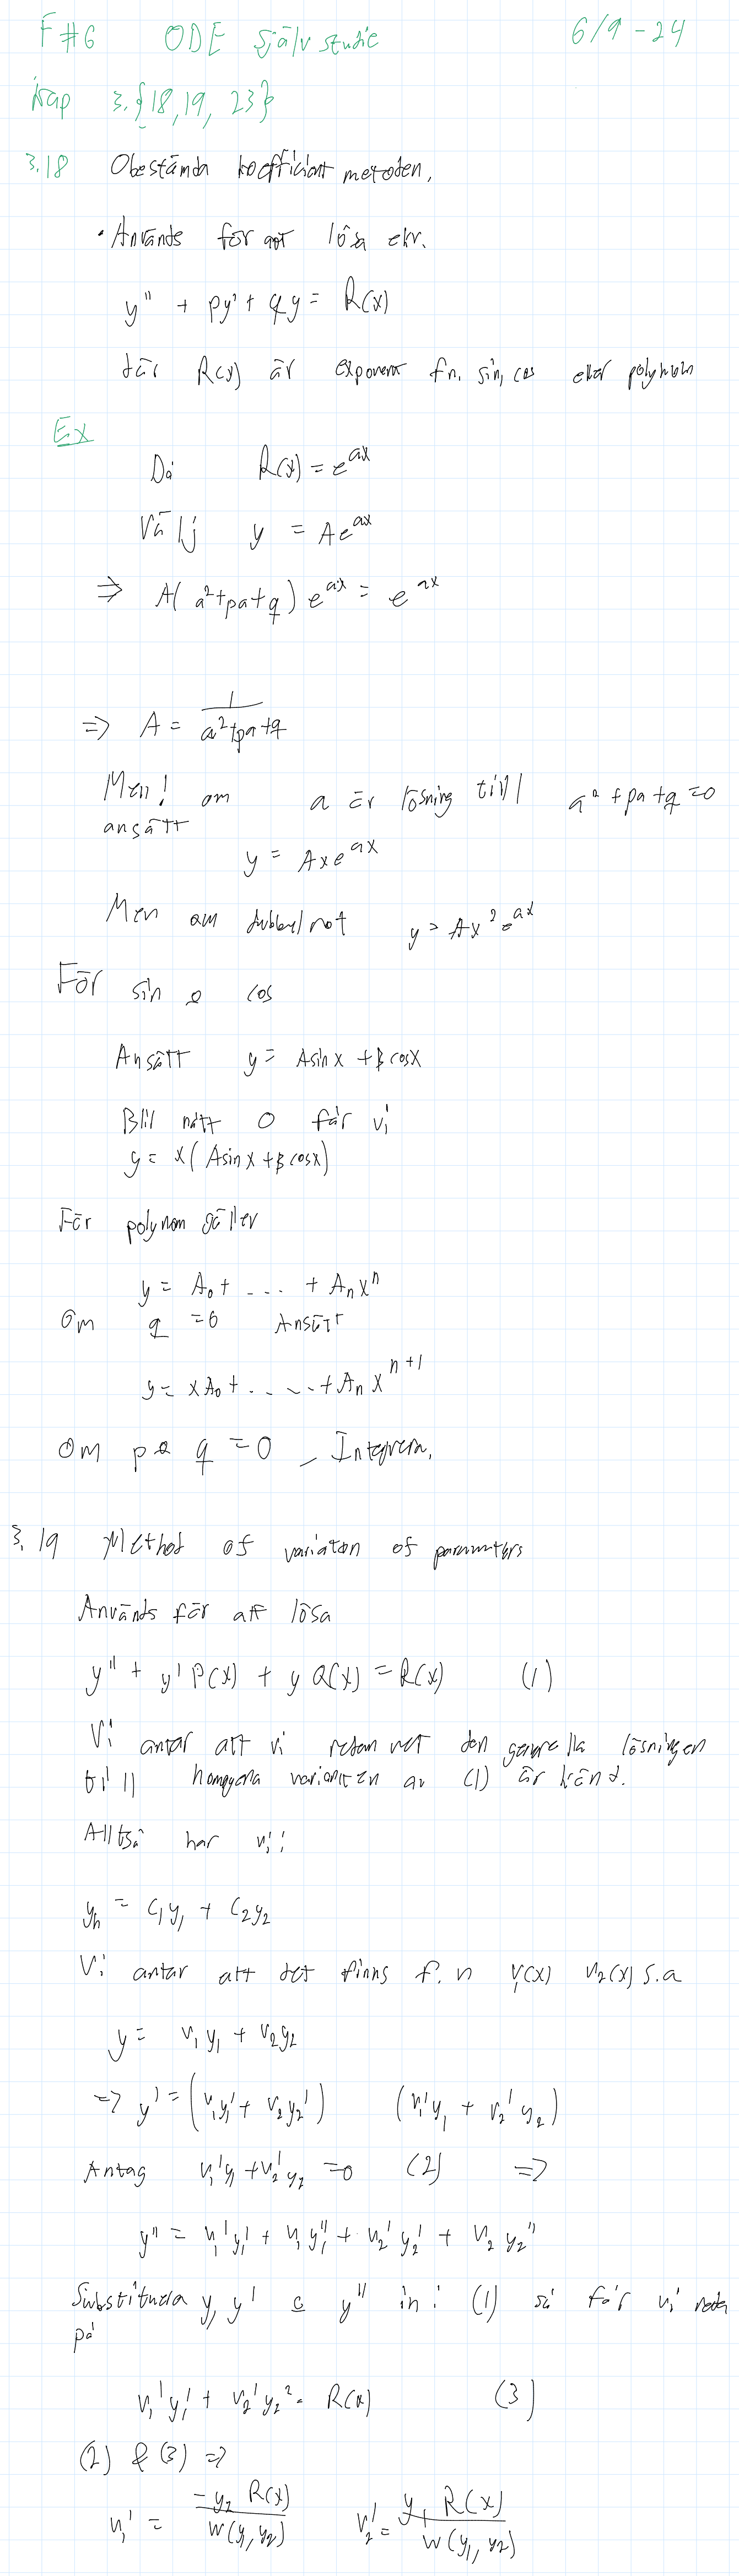 F#6 ODE Självstudie 6/9-24
Kap 3.{18,19, 23}
3.18 Obestämda koefficient metoden.
• Används för att lösa ekv.
y'' + py' + qy = R(x)
där R(x) är exponent fn, sin, cos eller polynom
Ex
Då R(x) = e^{ax}
Välj y = Ae^{ax}
⇒ A(a²+pa+q) e^{ax} = e^{ax}
⇒ A = 1/(a²+pa+q)
Men! om a är lösning till a²+pa+q=0
ansätt
y = Axe^{ax}
Men om dubbelrot y = Ax²e^{ax}
För sin & cos
Ansätt y = Asinx + Bcosx
Blir nått 0 får vi
y = x(Asinx + Bcosx)
För polynom gäller
y = A₀ + .... + Aₙxⁿ
Om q = 0 Ansätt
y = xA₀ + ..... + Aₙx^{n+1}
Om p & q = 0, Integrera.
3.19 Method of variaton of parameters
Används för att lösa
y'' + y'P(x) + yQ(x) = R(x) (1)
Vi antar att vi redan vet den generella lösningen
till homogena varianten av (1) är känd.
Alltså har vi:
y_h = c₁y₁ + c₂y₂
Vi antar att det finns f.n v₁(x) v₂(x) s.a
y = v₁y₁ + v₂y₂
⇒ y' = (v₁y₁' + v₂y₂') (v₁'y₁ + v₂'y₂)
Antag v₁'y₁ + v₂'y₂ = 0 (2) ⇒
y'' = v₁'y₁' + v₁y₁'' + v₂'y₂' + v₂y₂''
Substituera y, y' & y'' in i (1) så får vi reda
på
v₁'y₁' + v₂'y₂' = R(x) (3)
(2) & (3) ⇒
v₁' = -y₂ R(x)/W(y₁,y₂) v₂' = y₁ R(x)/W(y₁,y₂)